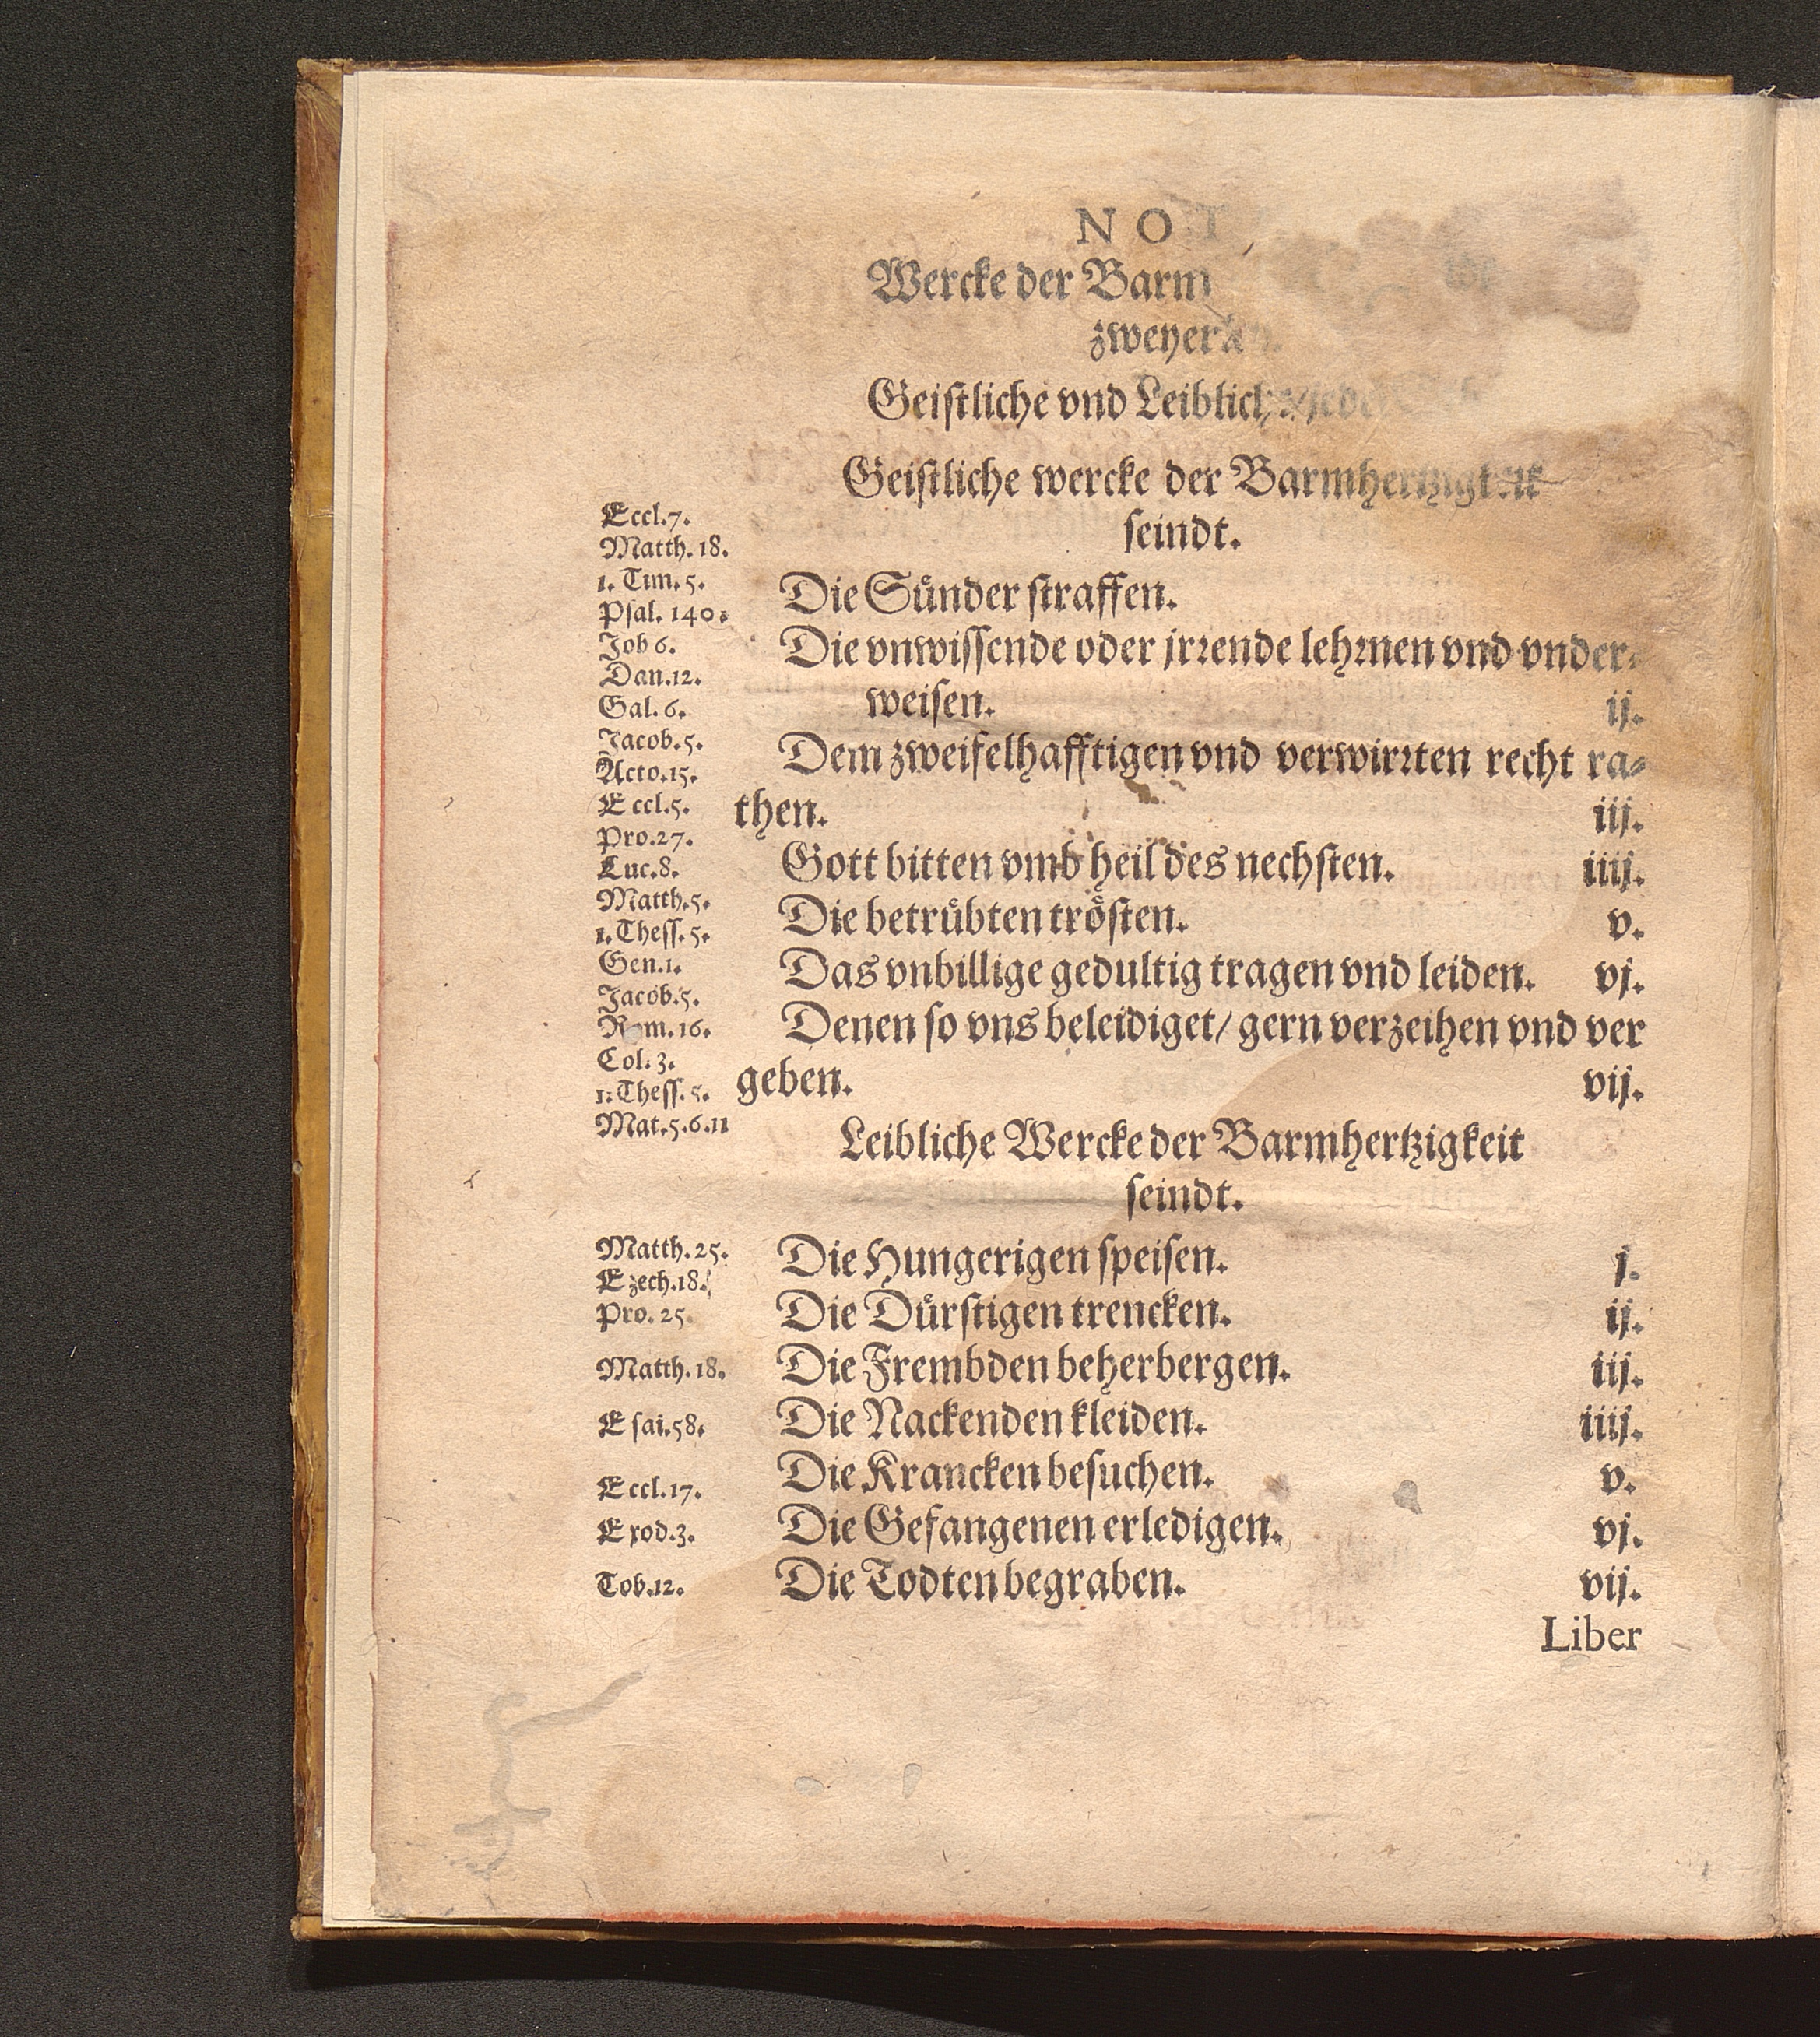 NOT
Wercke der Barm
zweyer
Geistliche vnd Leibliche
Geistliche wercke der Barmhertzigkeit
seindt.
Eccl.7.
Matth.18.
1. Tim. 5.
Psal. 140.
Job 6.
Dan.12.
Gal. 6.
Jacob.5.
Acto.15.
Eccl.5.
Pro.27.
Luc.8.
Matth.5.
1. Thess. 5.
Gen.1.
Jacob.5.
Rom. 16.
Col. 3.
1. Thess. 5.
Mat.5.6.11
Die Sůnder straffen.
Die vnwissende oder jrrende lehrnen vnd vnder-
weisen. ij.
Dem zweifelhafftigen vnd verwirrten recht ra-
then. iij.
Gott bitten vmb heil des nechsten. iiij.
Die betrůbten trösten. v.
Das vnbillige gedultig tragen vnd leiden. vj.
Denen so vns beleidiget/ gern verzeihen vnd ver
geben. vij.
Leibliche Wercke der Barmhertzigkeit
seindt.
Matth. 25.
Ezech.18.
Pro. 25.
Matth. 18.
Esai.58.
Eccl.17.
Exod.3.
Tob.12.
Die Hungerigen speisen. j.
Die Důrstigen trencken. ij.
Die Frembden beherbergen. iij.
Die Nackenden kleiden. iiij.
Die Krancken besuchen. v.
Die Gefangenen erledigen. vj.
Die Todten begraben. vij.
Liber